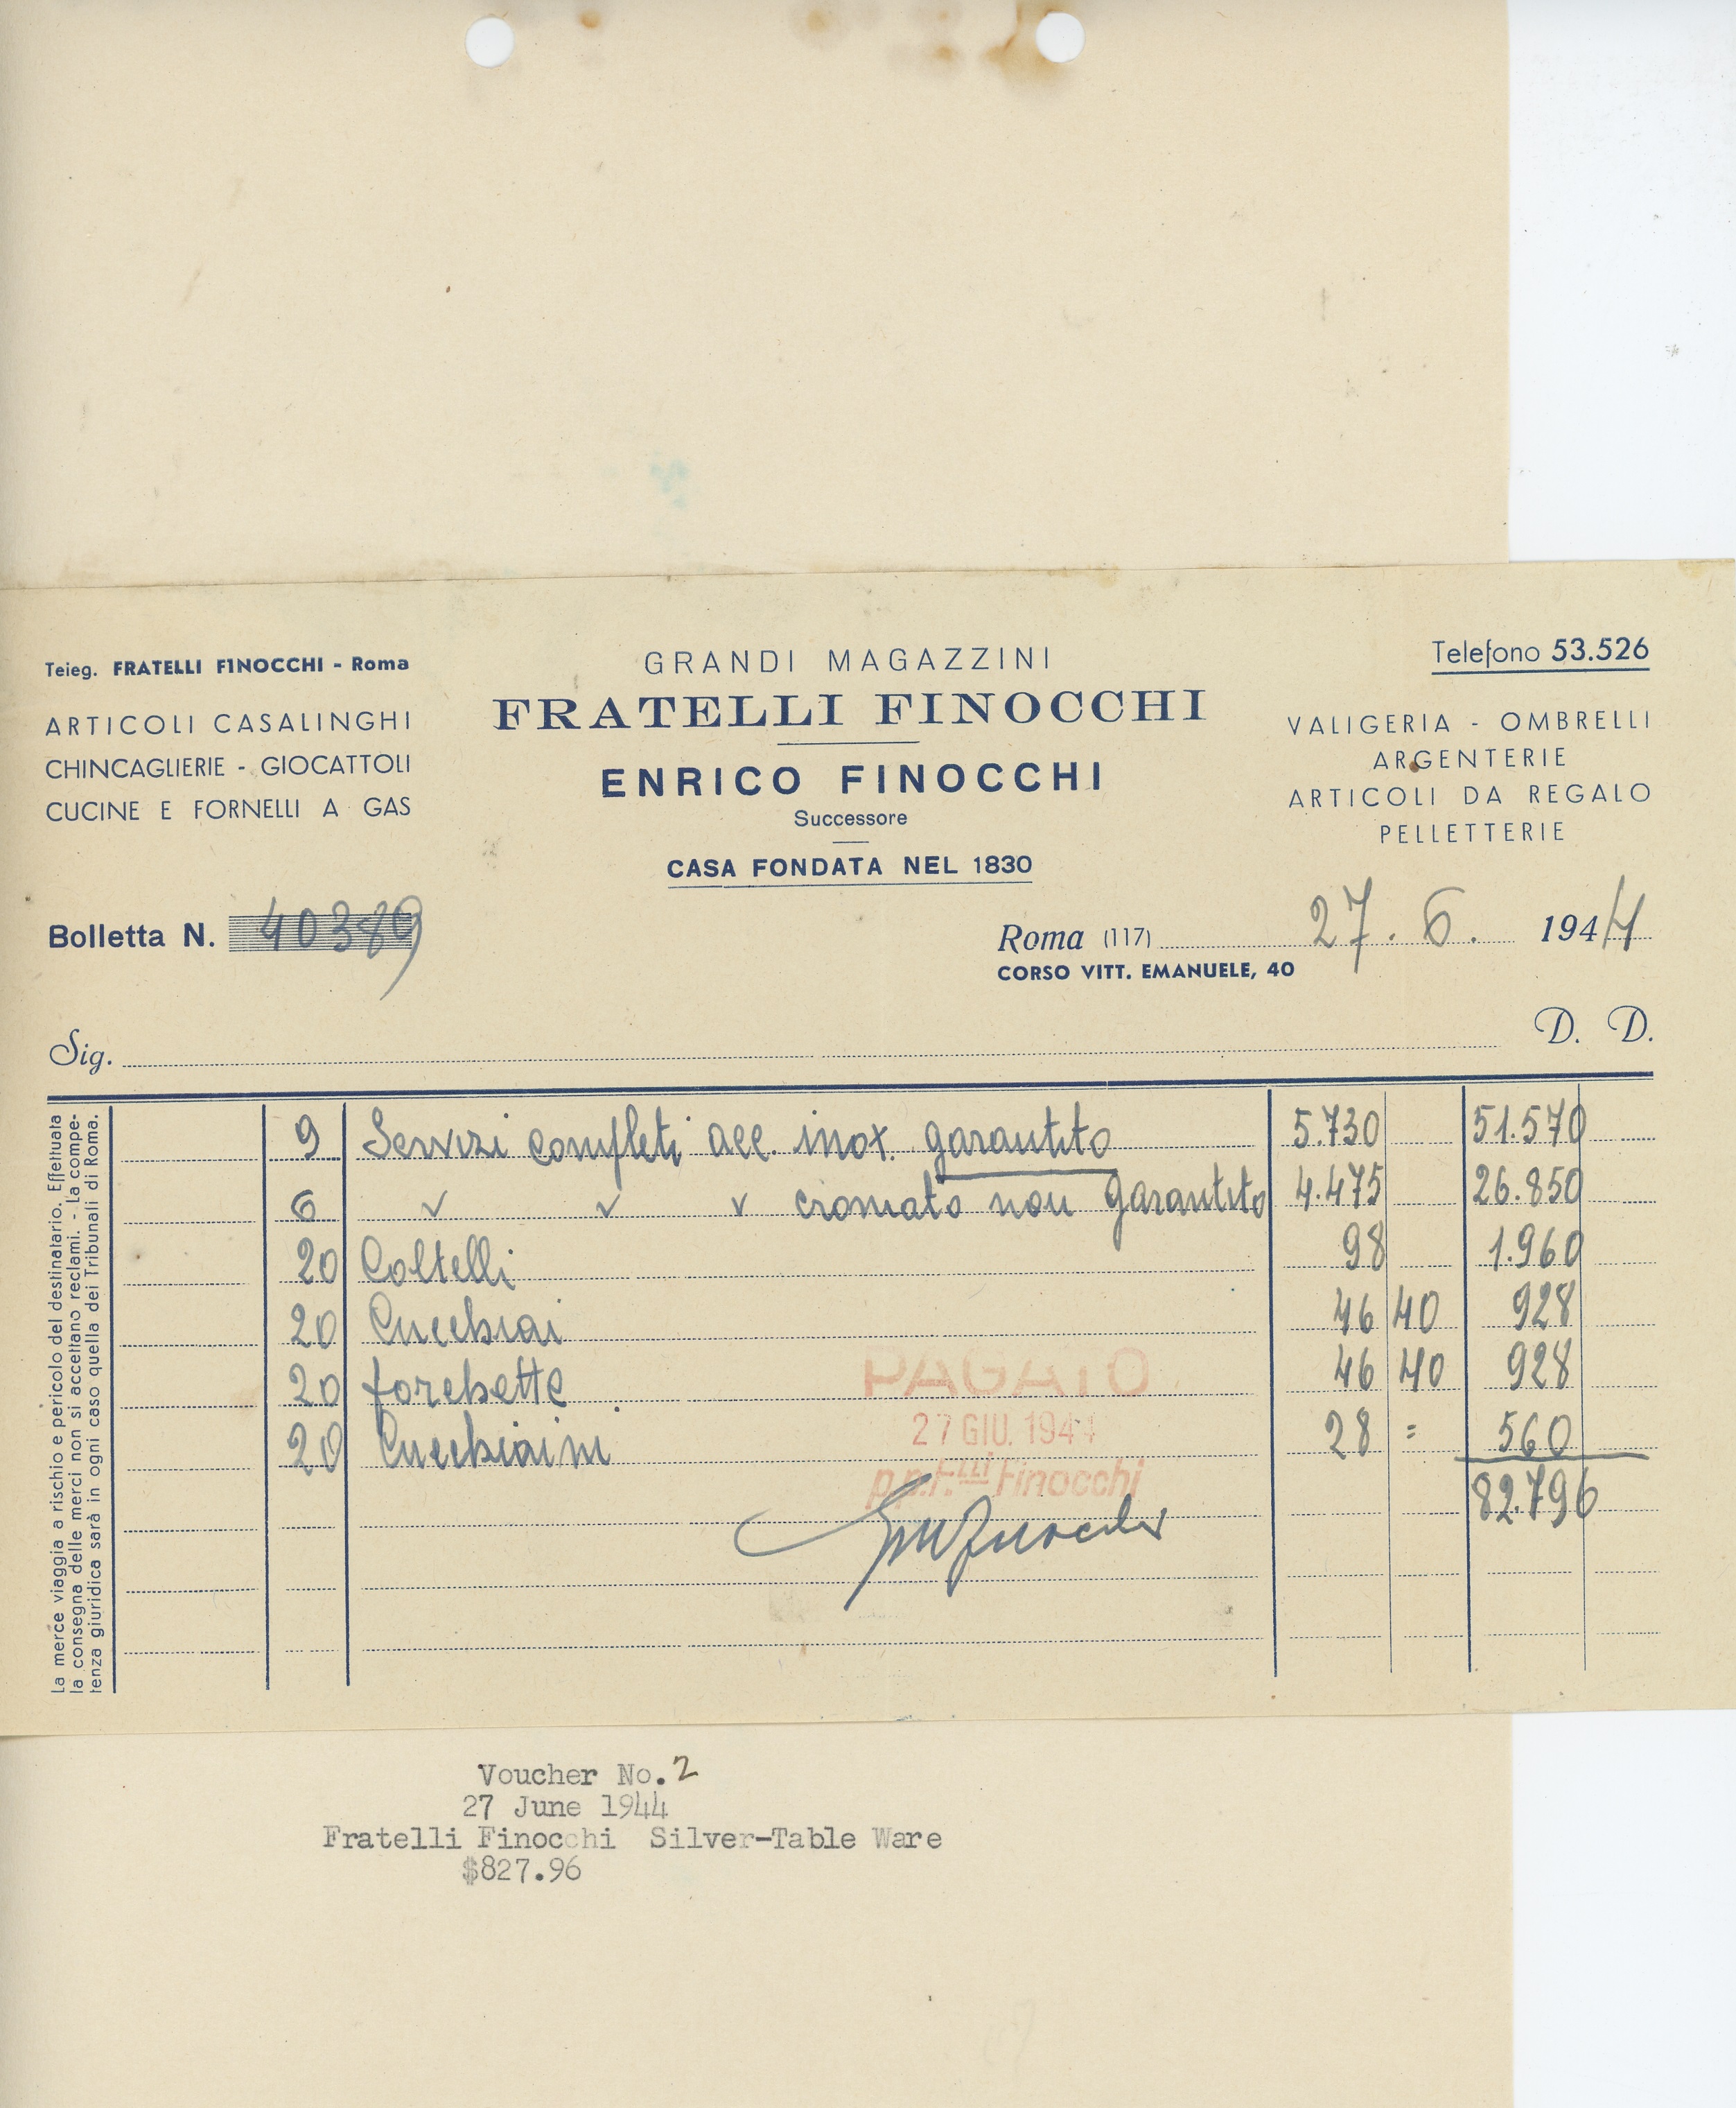 Teleg. FRATELLI FINOCCHI - Roma
ARTICOLI CASALINGHI
CHINCAGLIERIE - GIOCATTOLI
CUCINE E FORNELLI A GAS
GRANDI MAGAZZINI
FRATELLI FINOCCHI
ENRICO FINOCCHI
Successore
CASA FONDATA NEL 1830
Telefono 53.526
VALIGERIA - OMBRELLI
ARGENTERIE
ARTICOLI DA REGALO
PELLETTERIE
Bolletta N. 40389
Roma (117) 27.6. 1944
CORSO VITT. EMANUELE, 40
Sig. D. D.
La merce viaggia a rischio e pericolo del destinatario. Effettuata
la consegna delle merci non si accettano reclami. - La compe-
tenza giuridica sarà in ogni caso quella dei Tribunali di Roma.
9 Servizi completi acc. inox. garantito 5.730 51.570
6 ✓ ✓ ✓ cromato non garantito 4.475 26.850
20 Coltelli 98 1.960
20 Cucchiai 46 40 928
20 forchette 46 40 928
20 Cucchiaini 28 = 560
82.796
PAGATO
27 GIU. 1944
p.p. F.lli Finocchi
Voucher No. 2
27 June 1944
Fratelli Finocchi Silver-Table Ware
$827.96